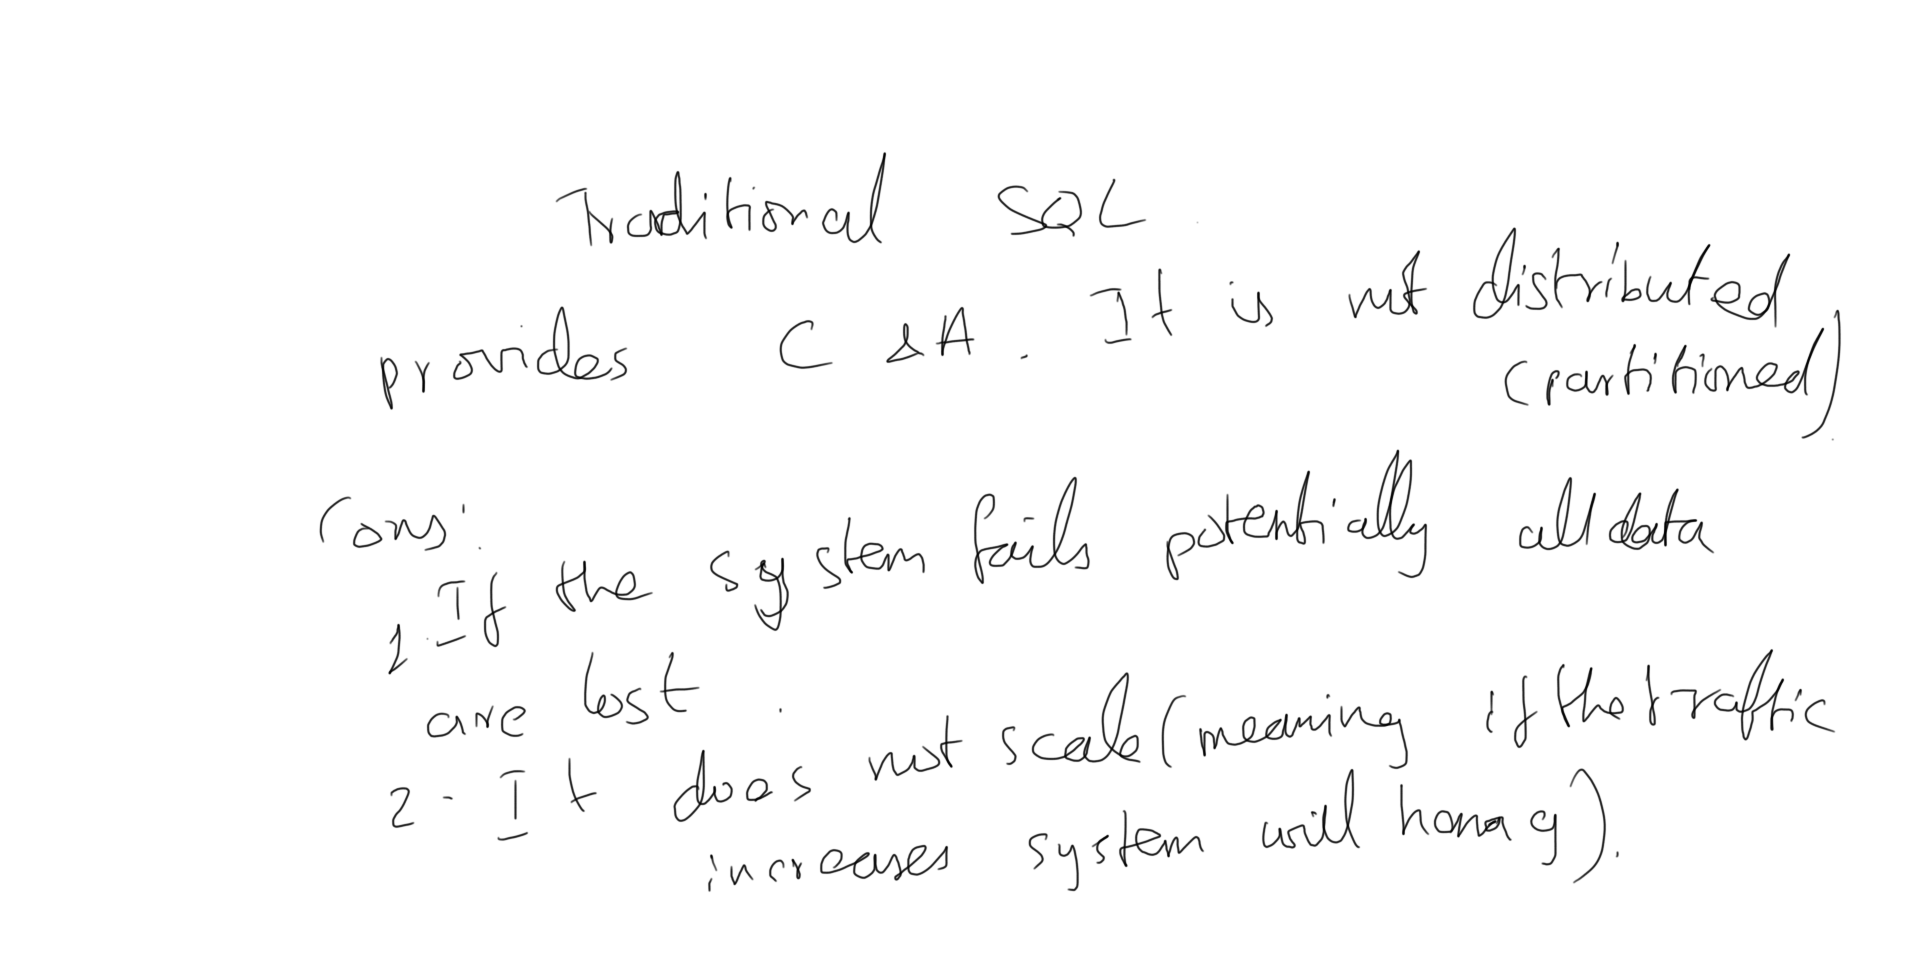 Traditional SQL
provides C & A. It is not distributed
(partitioned)
Cons:
1. If the system fails potentially all data
are lost.
2. It does not scale (meaning if the traffic
increases system will